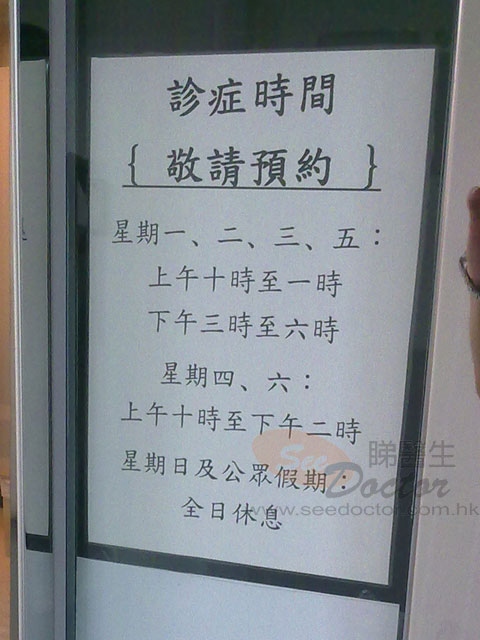 診症時間
{ 敬請預約 }
星期一、二、三、五：
上午十時至一時
下午三時至六時
星期四、六：
上午十時至下午二時
星期日及公眾假期：
全日休息
See Doctor 睇醫生
www.seedoctor.com.hk